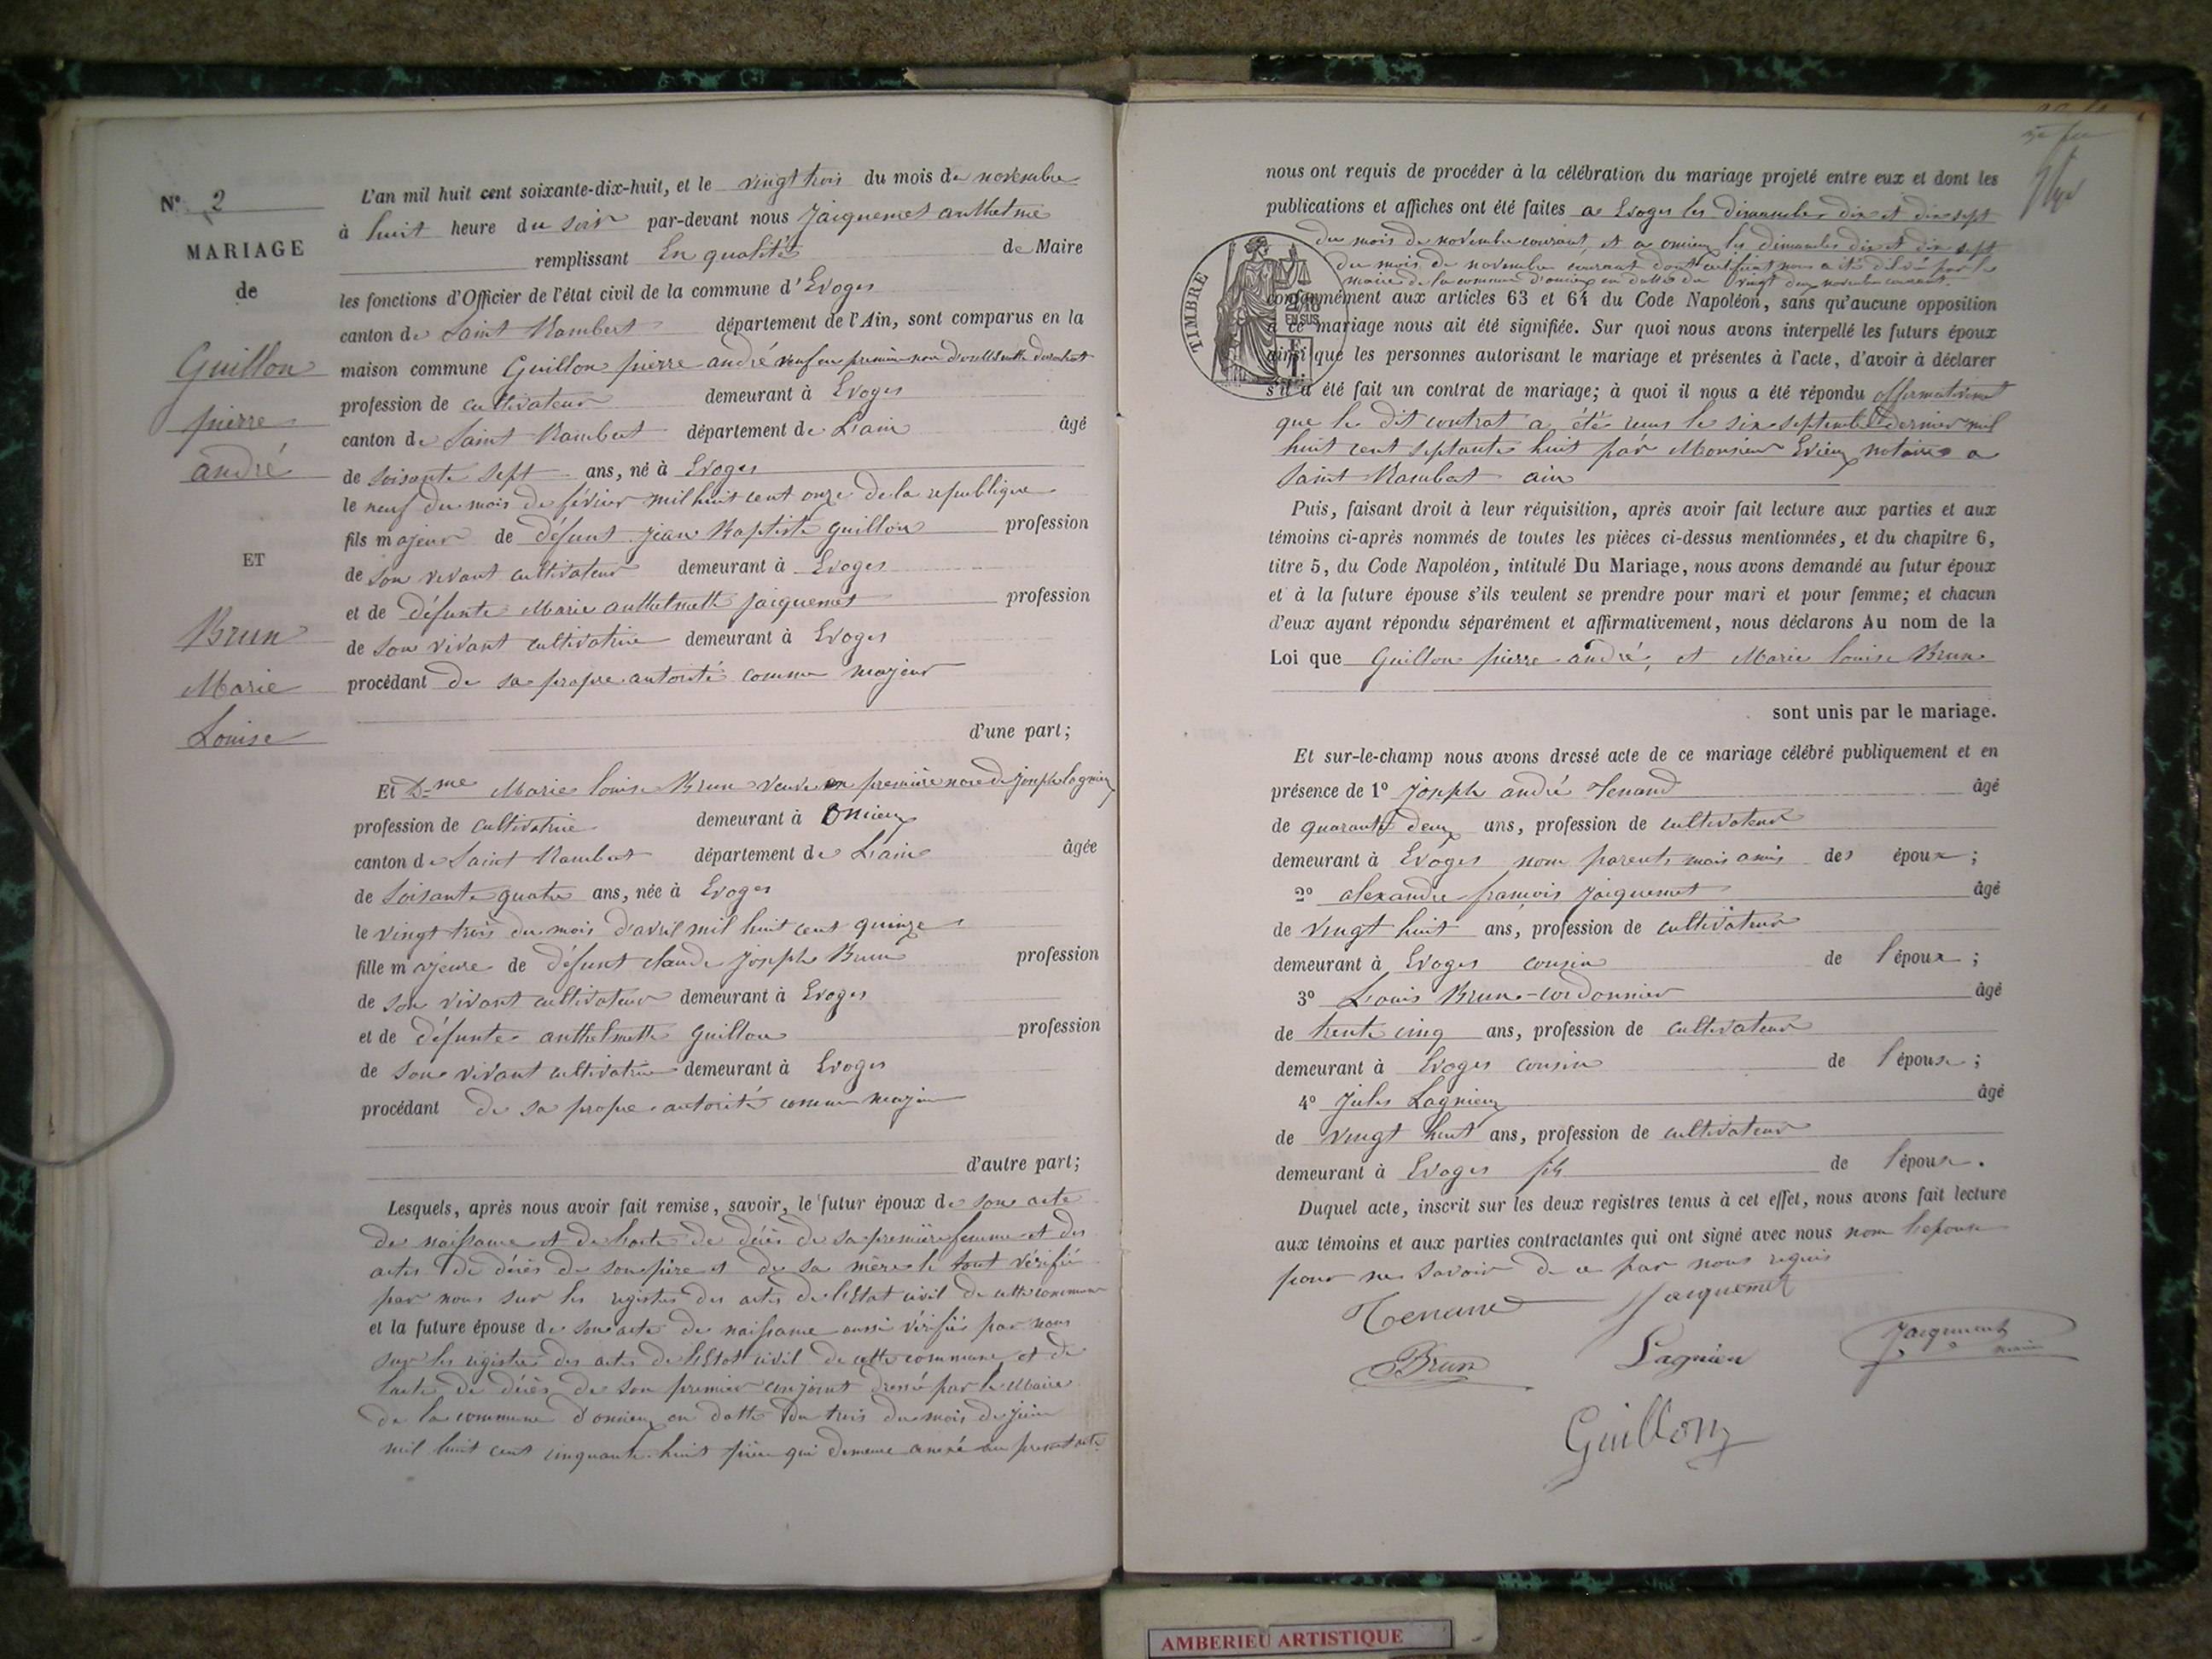 N° 2
MARIAGE
de
Guillon
pierre
andré
ET
Brun
Marie
Louise
L'an mil huit cent soixante-dix-huit, et le vingt trois du mois de novembre
à huit heure du soir par-devant nous Jacquemet anthelme
remplissant En qualité de Maire
les fonctions d'Officier de l'état civil de la commune d'Evoges
canton de Saint Rambert département de l'Ain, sont comparus en la
maison commune Guillon pierre andré veuf en premiere noce
profession de cultivateur demeurant à Evoges
canton de Saint Rambert département de L'ain âgé
de soisante sept ans, né à Evoges
le neuf du mois de février mil huit cent onze de la republique
fils majeur de défunt jean Baptiste guillon profession
de son vivant cultivateur demeurant à Evoges
et de défunte Marie anthelmette jacquemet profession
de son vivant cultivatrice demeurant à Evoges
procédant de sa propre autorité comme majeur
d'une part;
Et Dme Marie louise Brun veuve en première noce de joseph lagnieu
profession de cultivatrice demeurant à Oncieu
canton de Saint Rambert département de L'ain âgée
de Soisante quatre ans, née à Evoges
le vingt trois du mois d'avril mil huit cent quinze
fille majeure de défunt claude joseph Brun profession
de son vivant cultivateur demeurant à Evoges
et de défunte anthelmette guillon profession
de son vivant cultivatrice demeurant à Evoges
procédant de sa propre autorité comme majeur
d'autre part;
Lesquels, après nous avoir fait remise, savoir, le futur époux de son acte
de naissance et de l'acte de décès de sa première femme et des
actes de décès de son père et de sa mère le tout vérifié
par nous sur les registres des actes de l'Etat civil de cette commune
et la future épouse de son acte de naissance aussi vérifié par nous
sur les registres des actes de l'Etat civil de cette commune et de
l'acte de décès de son premier conjoint dressé par le Maire
de la commune d'oncieu en datte du trois du mois de juin
mil huit cent cinquante huit pièce qui demeure anexé au present acte
nous ont requis de procéder à la célébration du mariage projeté entre eux et dont les
publications et affiches ont été faites a Evoges les dimanches dix et dix sept
du mois de novembre courant et a oncieu les dimanches dix et dix sept
du mois de novembre courant dont certificat nous a été délivré par le
maire de la commune d'oncieu en datte du vingt deux novembre courant.
conformément aux articles 63 et 64 du Code Napoléon, sans qu'aucune opposition
à ce mariage nous ait été signifiée. Sur quoi nous avons interpellé les futurs époux
ainsi que les personnes autorisant le mariage et présentes à l'acte, d'avoir à déclarer
s'il a été fait un contrat de mariage; à quoi il nous a été répondu affirmativement
que le dit contrat a été reçus le six septembre dernier mil
huit cent septante huit par Monsieur Evieux notaire a
Saint Rambert ain
TIMBRE
2/10
EN SUS
Puis, faisant droit à leur réquisition, après avoir fait lecture aux parties et aux
témoins ci-après nommés de toutes les pièces ci-dessus mentionnées, et du chapitre 6,
titre 5, du Code Napoléon, intitulé Du Mariage, nous avons demandé au futur époux
et à la future épouse s'ils veulent se prendre pour mari et pour femme; et chacun
d'eux ayant répondu séparément et affirmativement, nous déclarons Au nom de la
Loi que Guillon pierre andré, et Marie louise Brun
sont unis par le mariage.
Et sur-le-champ nous avons dressé acte de ce mariage célébré publiquement et en
présence de 1° joseph andré Tenand âgé
de quarante deux ans, profession de cultivateur
demeurant à Evoges nom parents mais amis des époux;
2° alexandre françois jacquemet âgé
de vingt huit ans, profession de cultivateur
demeurant à Evoges cousin de l'époux;
3° Louis Brun-cordonnier âgé
de trente cinq ans, profession de cultivateur
demeurant à Evoges cousin de l'épouse;
4° Jules Lagnieu âgé
de vingt huit ans, profession de cultivateur
demeurant à Evoges fils de l'épouse.
Duquel acte, inscrit sur les deux registres tenus à cet effet, nous avons fait lecture
aux témoins et aux parties contractantes qui ont signé avec nous nom l'epouse
pour ne savoir de ce par nous requis
Tenand Jacquemet
Brun Lagnieu Jacquemet maire
Guillon
AMBERIEU ARTISTIQUE